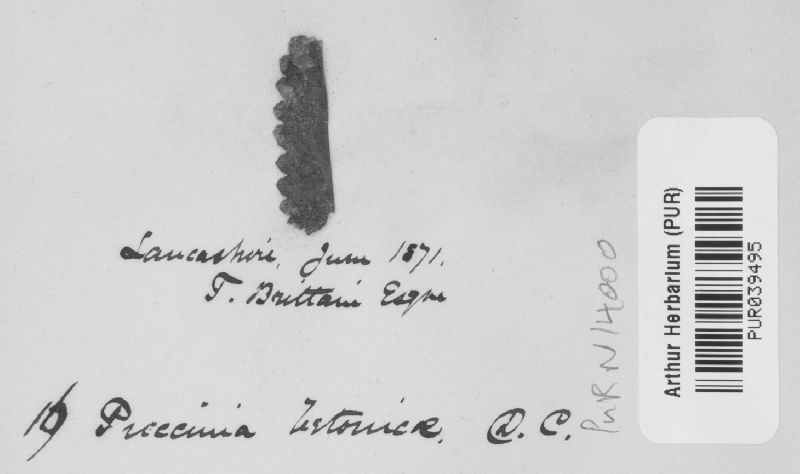 Lancashire, June 1871.
T. Brittain Esqre
16) Puccinia betonicæ, D. C.
PUR N 14000
Arthur Herbarium (PUR)
PUR039495